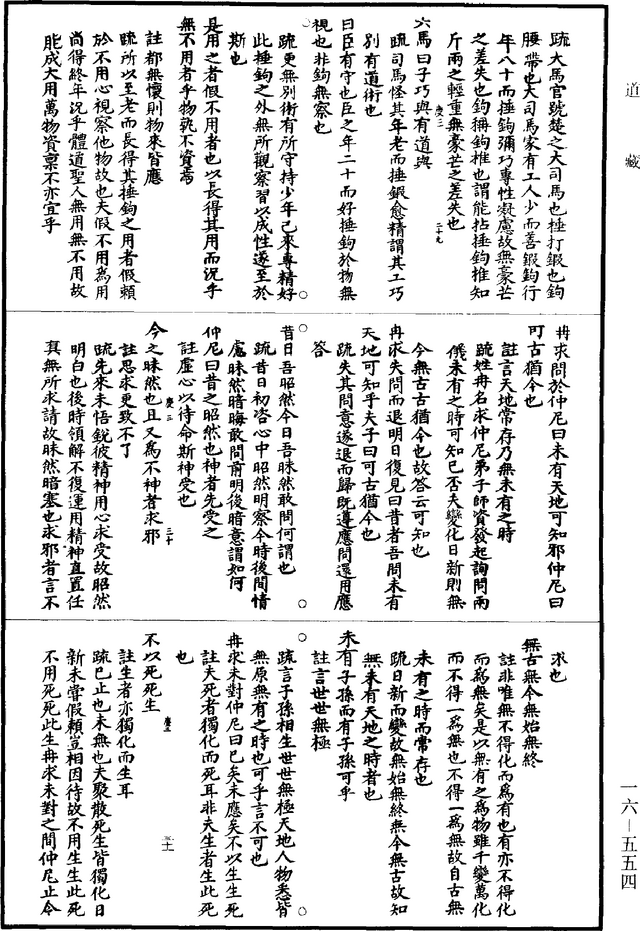 道藏
疏大馬官號楚之大司馬也捶打鍜也鉤
腰帶也大司馬家有工人少而善鍜鉤行
年八十而捶鉤彌巧專性凝慮故無豪芒
之差失也鉤捔鉤椎也謂能拈捶鉤椎知
斤兩之輕重無豪芒之差失也
慶三
二十九
六馬曰子巧與有道與
疏司馬怪其年老而捶鍜愈精謂其工巧
別有道術也
曰臣有守也臣之年二十而好捶鉤於物無
視也非鉤無察也
疏更無別術有所守持少年已來專精好
此捶鉤之外無所觀察習以成性遂至於
斯也
是用之者假不用者也以長得其用而況乎
無不用者乎物孰不資焉
註都無懷則物來皆應
疏所以至老而長得其捶鉤之用者假賴
於不用心視察他物故也夫假不用為用
尚得終年況乎體道聖人無用無不用故
能成大用萬物資禀不亦宜乎
冉求問於仲尼曰未有天地可知邪仲尼曰
可古猶今也
註言天地常存乃無未有之時
疏姓冉名求仲尼弟子師資發起詢問兩
儀未有之時可知已否夫變化日新則無
今無古古猶今也故答云可知也
冉求失問而退明日復見曰昔者吾問未有
天地可知乎夫子曰可古猶今也
疏失其問意遂退而歸既遵應問還用應
答
昔日吾昭然今日吾昧然敢問何謂也
疏昔日初咨心中昭然明察今時後閒情
慮昧然暗晦敢問前明後暗意謂如何
仲尼曰昔之昭然也神者先受之
註虛心以待命斯神受也
今之昧然也且又為不神者求邪
慶三
三十
註思求更致不了
疏先來未悟銳彼精神用心求受故昭然
明白也後時領解不復運用精神直置任
真無所求請故昧然暗塞也求邪者言不
求也
無古無今無始無終
註非唯無不得化而為有也有亦不得化
而為無矣是以無有之為物雖千變萬化
而不得一為無也不得一為無故自古無
未有之時而常存也
疏日新而變故無始無終無今無古故知
無未有天地之時者也
未有子孫而有子孫可乎
註言世世無極
疏言子孫相生世世無極天地人物悉皆
無原無有之時也可乎言不可也
冉求未對仲尼曰已矣未應矣不以生生死
註夫死者獨化而死耳非夫生者生此死
也
不以死死生
慶三
三十一
註生者亦獨化而生耳
疏已止也未無也夫聚散死生皆獨化日
新未嘗假賴豈相因待故不用生生此死
不用死死此生冉求未對之間仲尼止令
一六—五五四